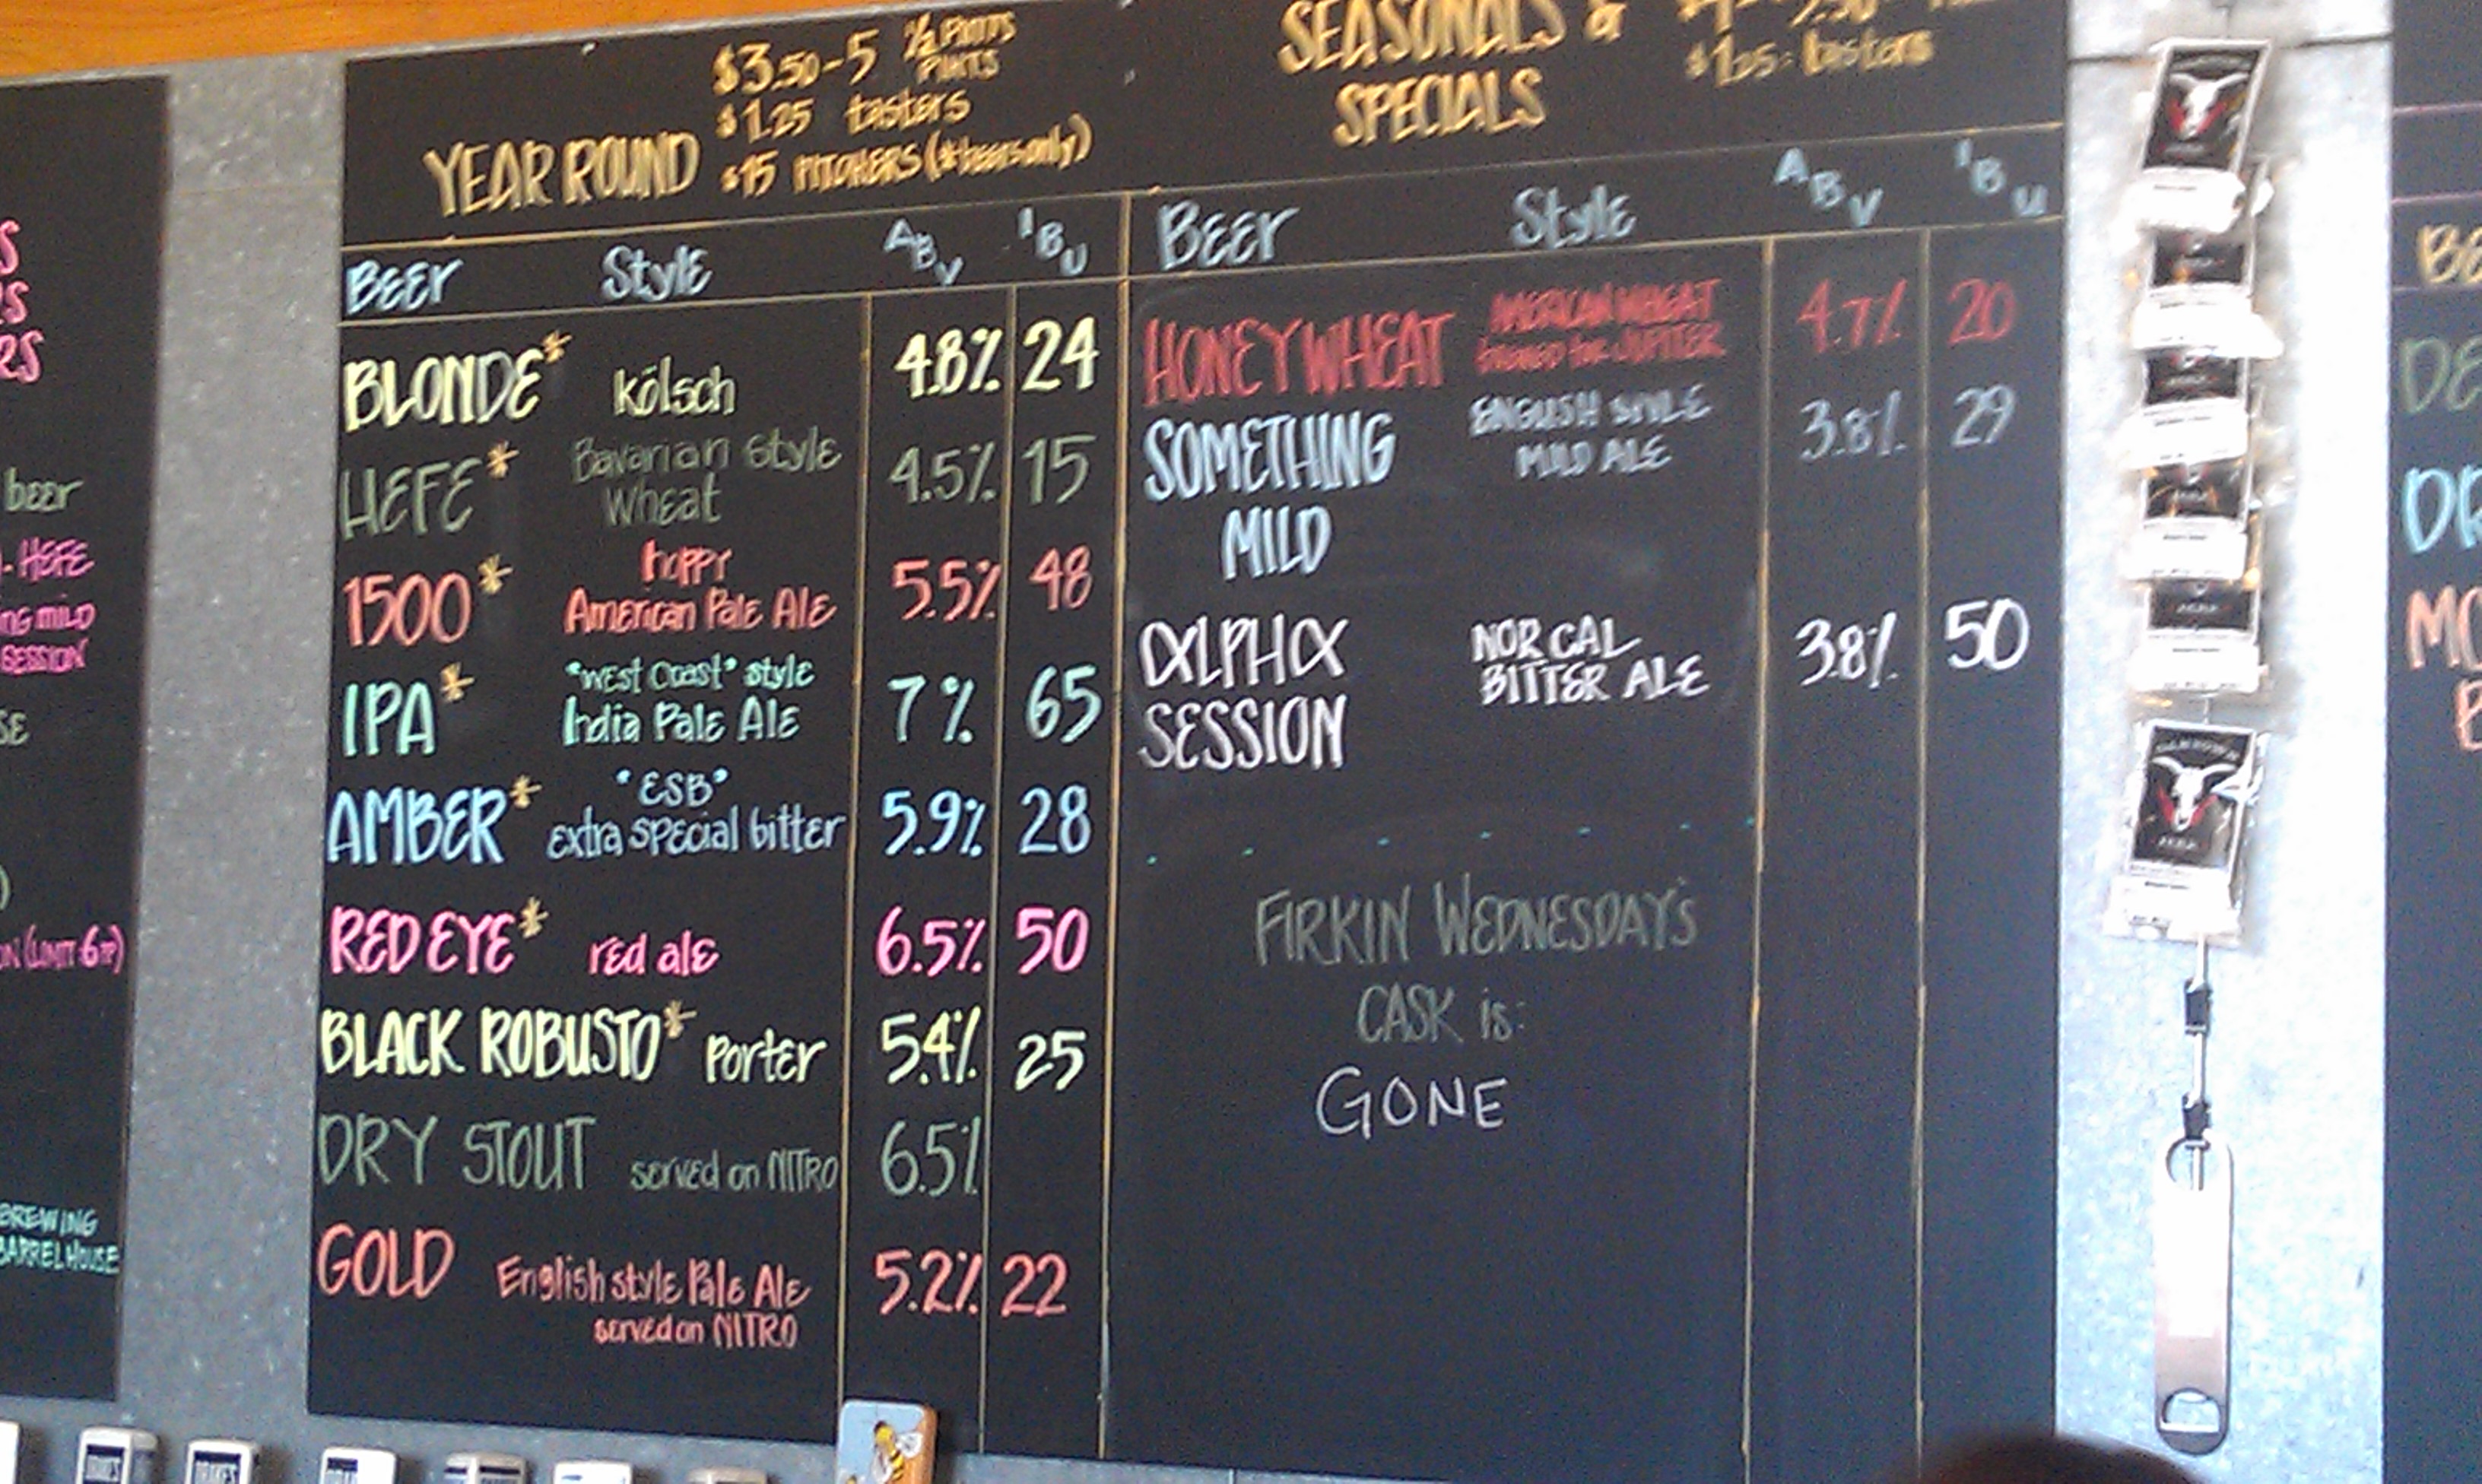 S
RS
RS
beer
- HEFE
ng mild
SESSION
SE
)
ON (LIMIT 6TP)
BREWING
BARRELHOUSE
YEAR ROUND
$3.50-5 ½ PINTS
PINTS
$1.25 tasters
$15 PITCHERS (*beers only)
BEER Style ABV IBU
BLONDE* kölsch 4.8% 24
HEFE* Bavarian Style
Wheat 4.5% 15
1500* hoppy
American Pale Ale 5.5% 48
IPA* "West Coast" style
India Pale Ale 7% 65
AMBER* "ESB"
extra special bitter 5.9% 28
RED EYE* red ale 6.5% 50
BLACK ROBUSTO* Porter 5.4% 25
DRY STOUT served on NITRO 6.5%
GOLD English style Pale Ale 5.2% 22
served on NITRO
SEASONALS &
SPECIALS
$1.25 tasters
BEER Style ABV IBU
HONEY WHEAT AMERICAN WHEAT
brewed for JUPITER 4.7% 20
SOMETHING ENGLISH STYLE 3.8% 29
MILD MILD ALE
ALPHA NOR CAL 3.8% 50
SESSION BITTER ALE
FIRKIN WEDNESDAY'S
CASK is:
GONE
BE
DE
DR
MO
B
DRAKE'S
DRAKE'S